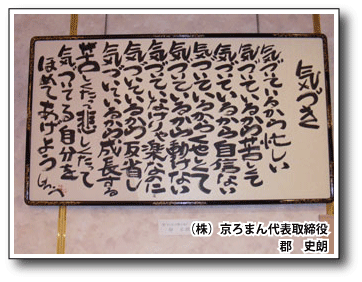 気づき
気づいているから忙しい
気づいているから苦しくて
気づいているから自信ない
気づいているから
気づいているから動けない
気づいていなけりゃ楽なのに
気づいているから反省し
気づいているから成長する
苦しくたって悲しくたって
気づいてる自分を
ほめてあげよう
(株) 京ろまん代表取締役
郡 史朗